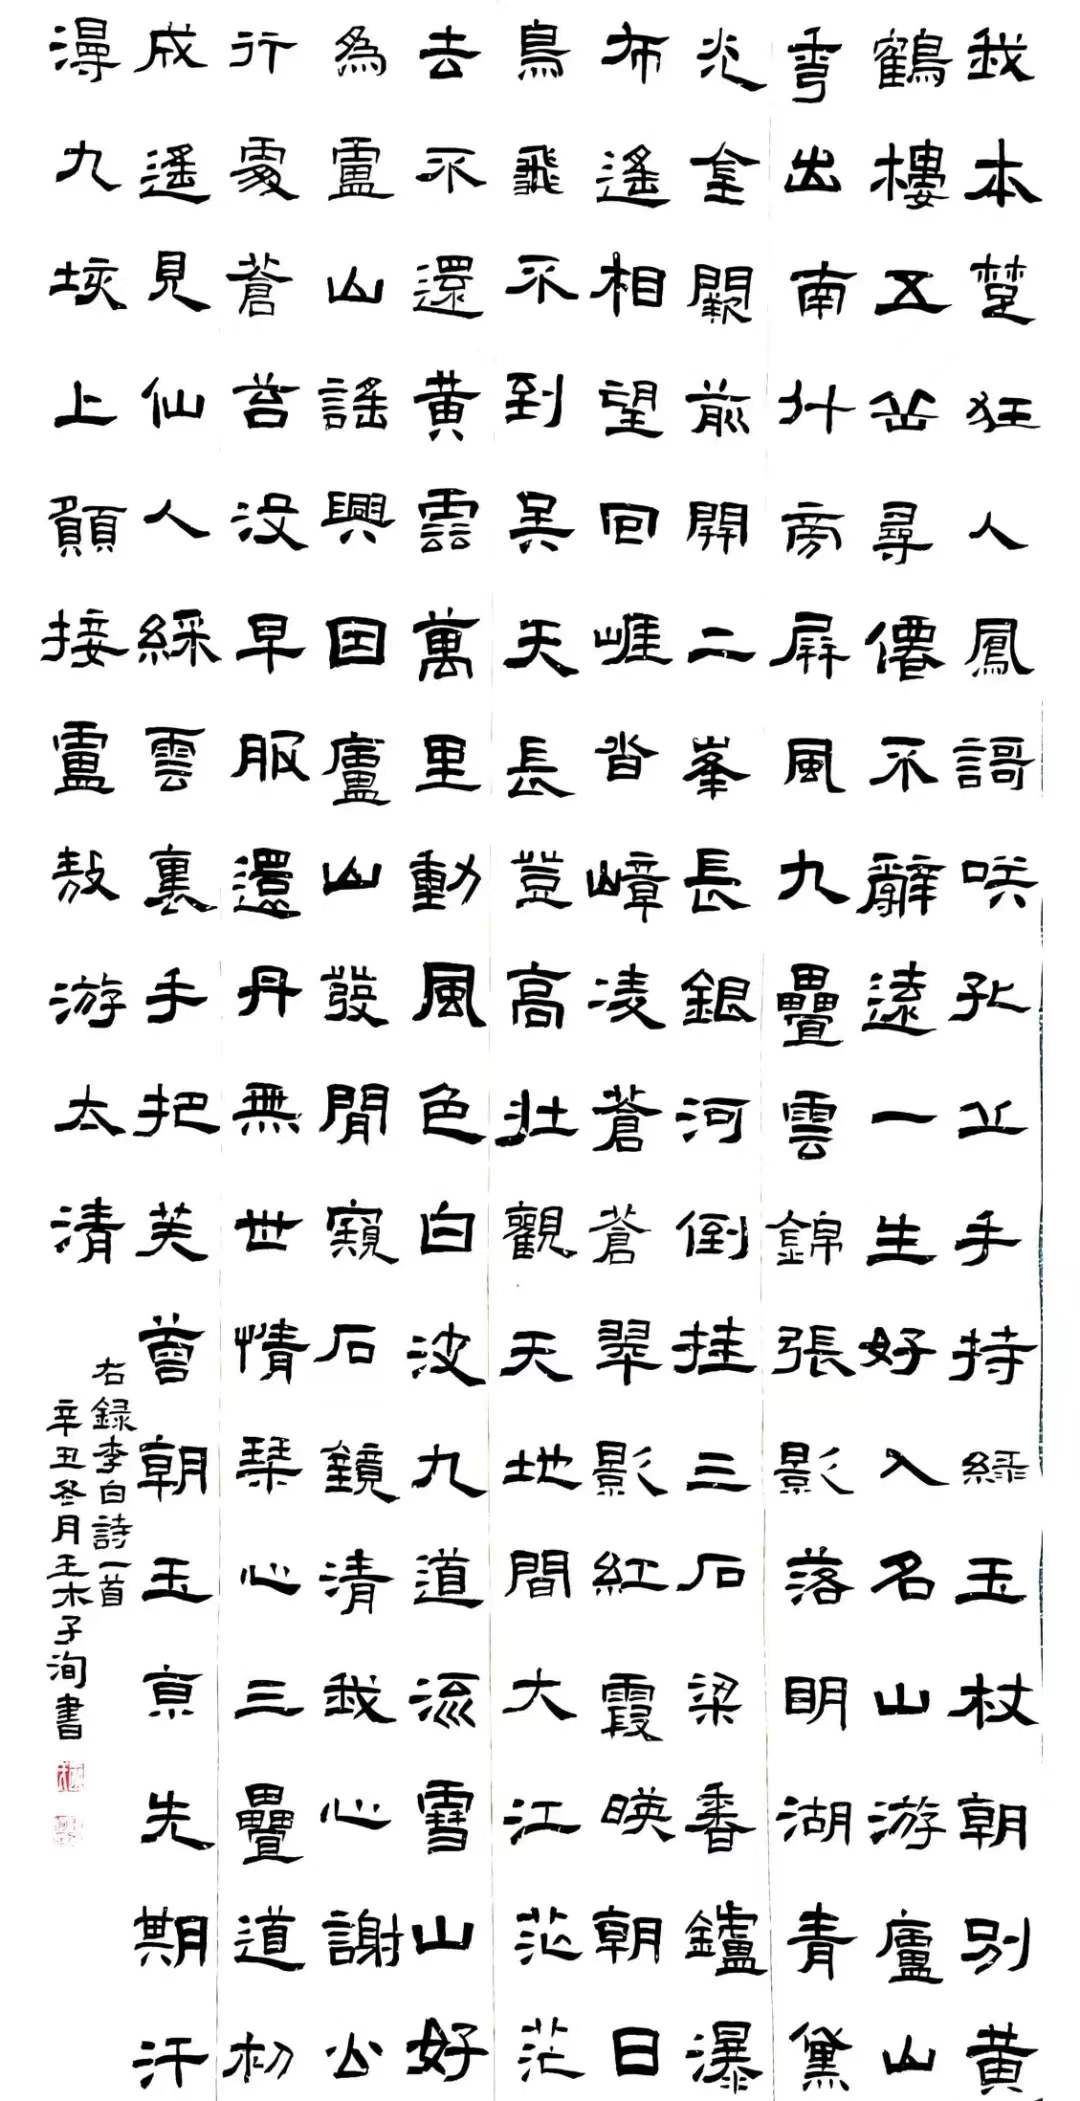 我本楚狂人鳳謌咲孔丘手持綠玉杖朝別黃
鶴樓五岳尋僊不辭遠一生好入名山游廬山
秀出南斗旁屏風九疊雲錦張影落明湖青黛
光金闕前開二峯長銀河倒挂三石梁香鑪瀑
布遙相望回崖沓嶂凌蒼蒼翠影紅霞暎朝日
鳥飛不到吳天長登高壯觀天地間大江茫茫
去不還黃雲萬里動風色白波九道流雪山好
為盧山謠興因廬山發閒窺石鏡清我心謝公
行處蒼苔沒早服還丹無世情琴心三疊道初
成遙見仙人綵雲裏手把芙蓉朝玉京先期汗
漫九垓上願接盧敖游太清
右録李白詩一首
辛丑冬月王木子洵書